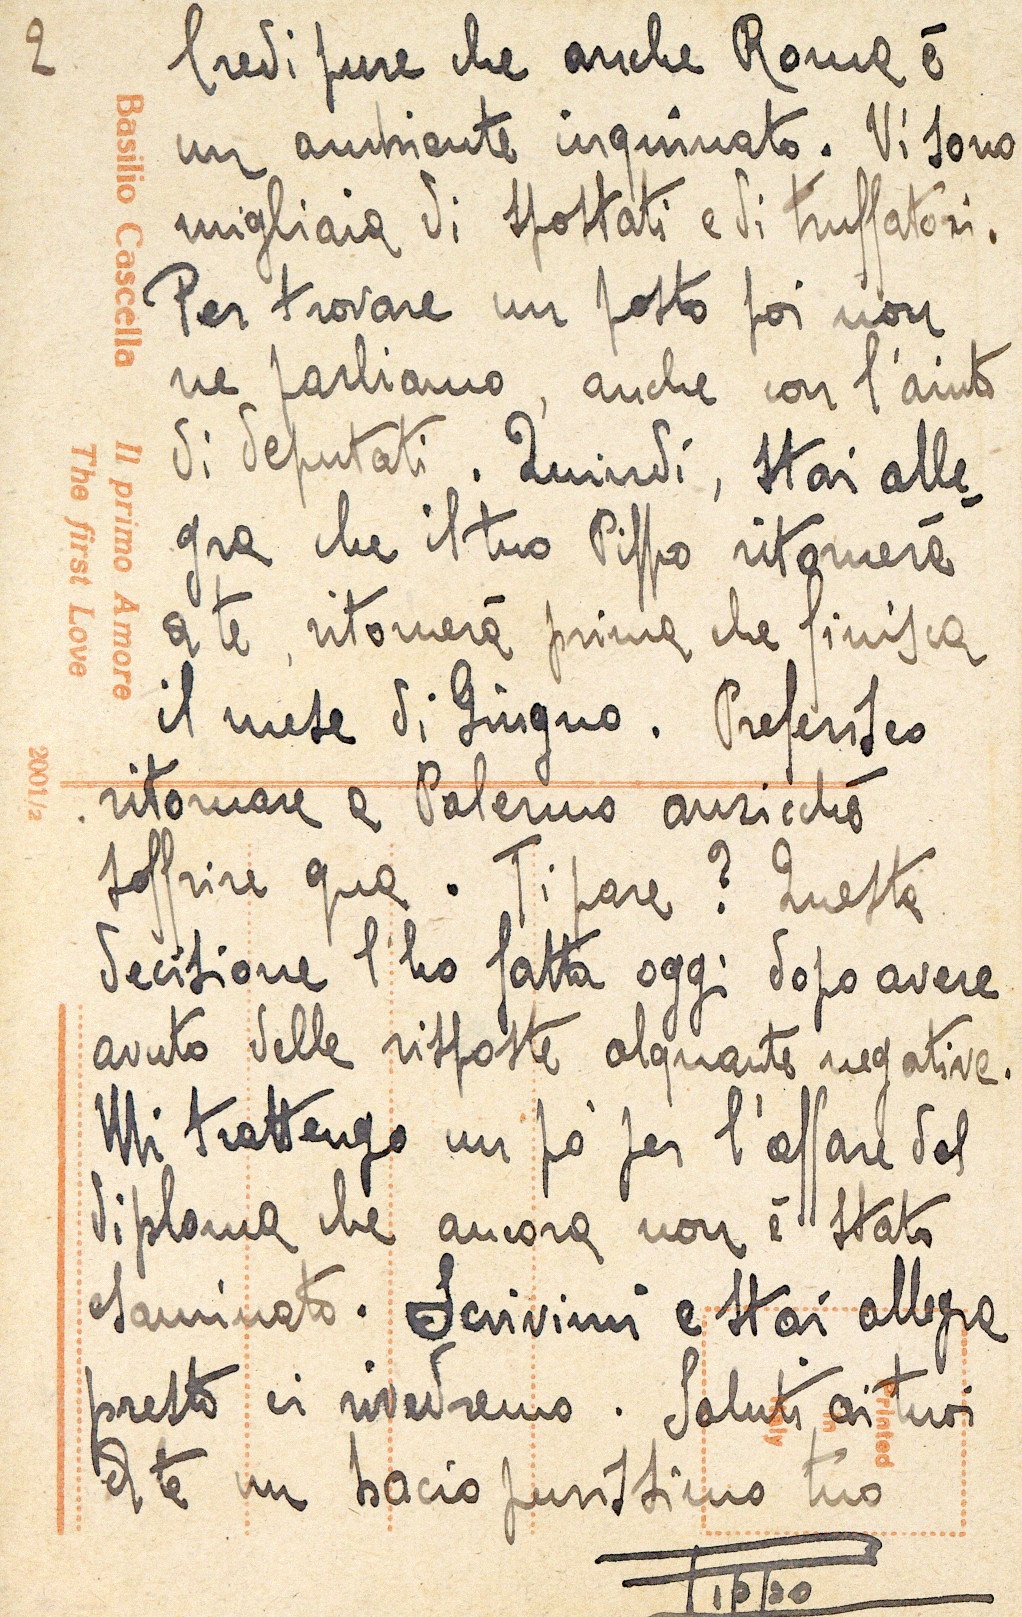 2
Credi pure che anche Roma è
un ambiente inquinato. Vi sono
migliaia di spostati e di truffatori.
Per trovare un posto poi non
ne parliamo, anche con l'aiuto
di deputati. Quindi, stai alle-
gra che il tuo Pippo ritornerà
a te, ritornerà prima che finisca
il mese di Giugno. Preferisco
ritornare a Palermo anzicchè
soffrire qua. Ti pare? Questa
decisione l'ho fatta oggi dopo avere
avuto delle risposte alquanto negative.
Mi trattengo un pò per l'affare del
diploma che ancora non è stato
esaminato. Scrivimi e stai allegra
presto ci rivedremo. Saluti ai tuoi
A te un bacio purissimo tuo
Pippo
Basilio Cascella
Il primo Amore
The first Love
2001/2
Printed
in
Italy